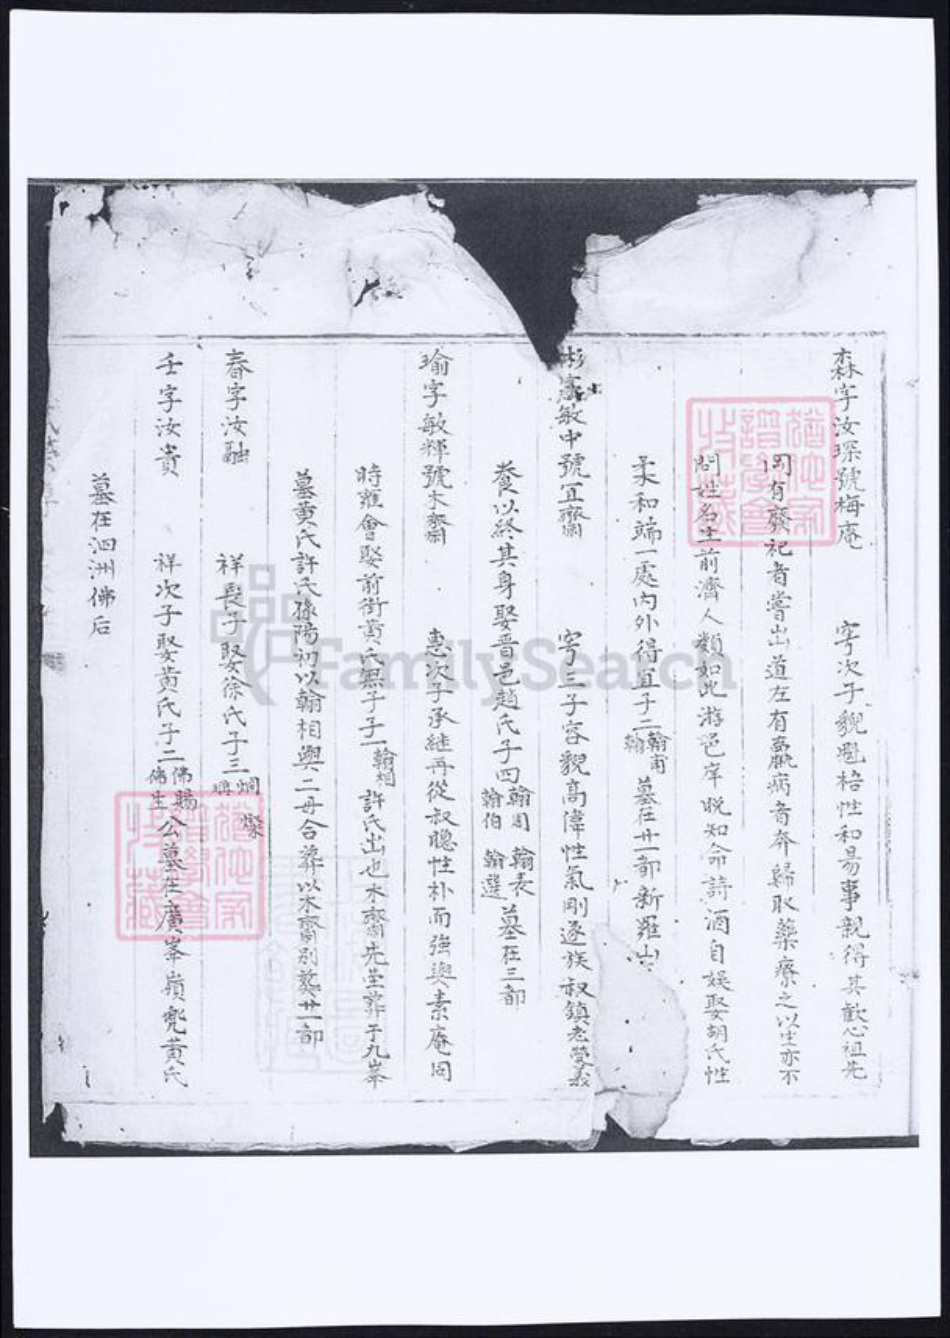 森字汝琛號梅庵 寧次子貌魁格性和易事親得其歡心祖先
岡有廢祀者嘗出道左有羸病者奔歸取藥療之以生亦不
問姓名生前濟人類如此游邑庠晚知命詩酒自娛娶胡氏性
柔和端一處內外得宜子二翰甫翰 墓在廿一都新羅山
彬字敏中號宜齋 寧三子容貌高偉性氣剛逐族叔鎮老
養以終其身娶晋邑趙氏子四翰周翰伯翰表翰選墓在三都
瑜字敏輝號木齋 惠次子承継再從叔聰性朴而強與素庵同
時雍會娶前街黄氏無子子一翰相許氏出也木齋先塋葬于九峯
墓黄氏許氏孫陽初以翰相與二母合葬以木齋別葬廿一都
春字汝融 祥長子娶徐氏子三炯燦
壬字汝賚 祥次子娶黄氏子二佛賜佛生公墓在廣峯嶺兜黄氏
墓在泗洲佛后
FamilySearch